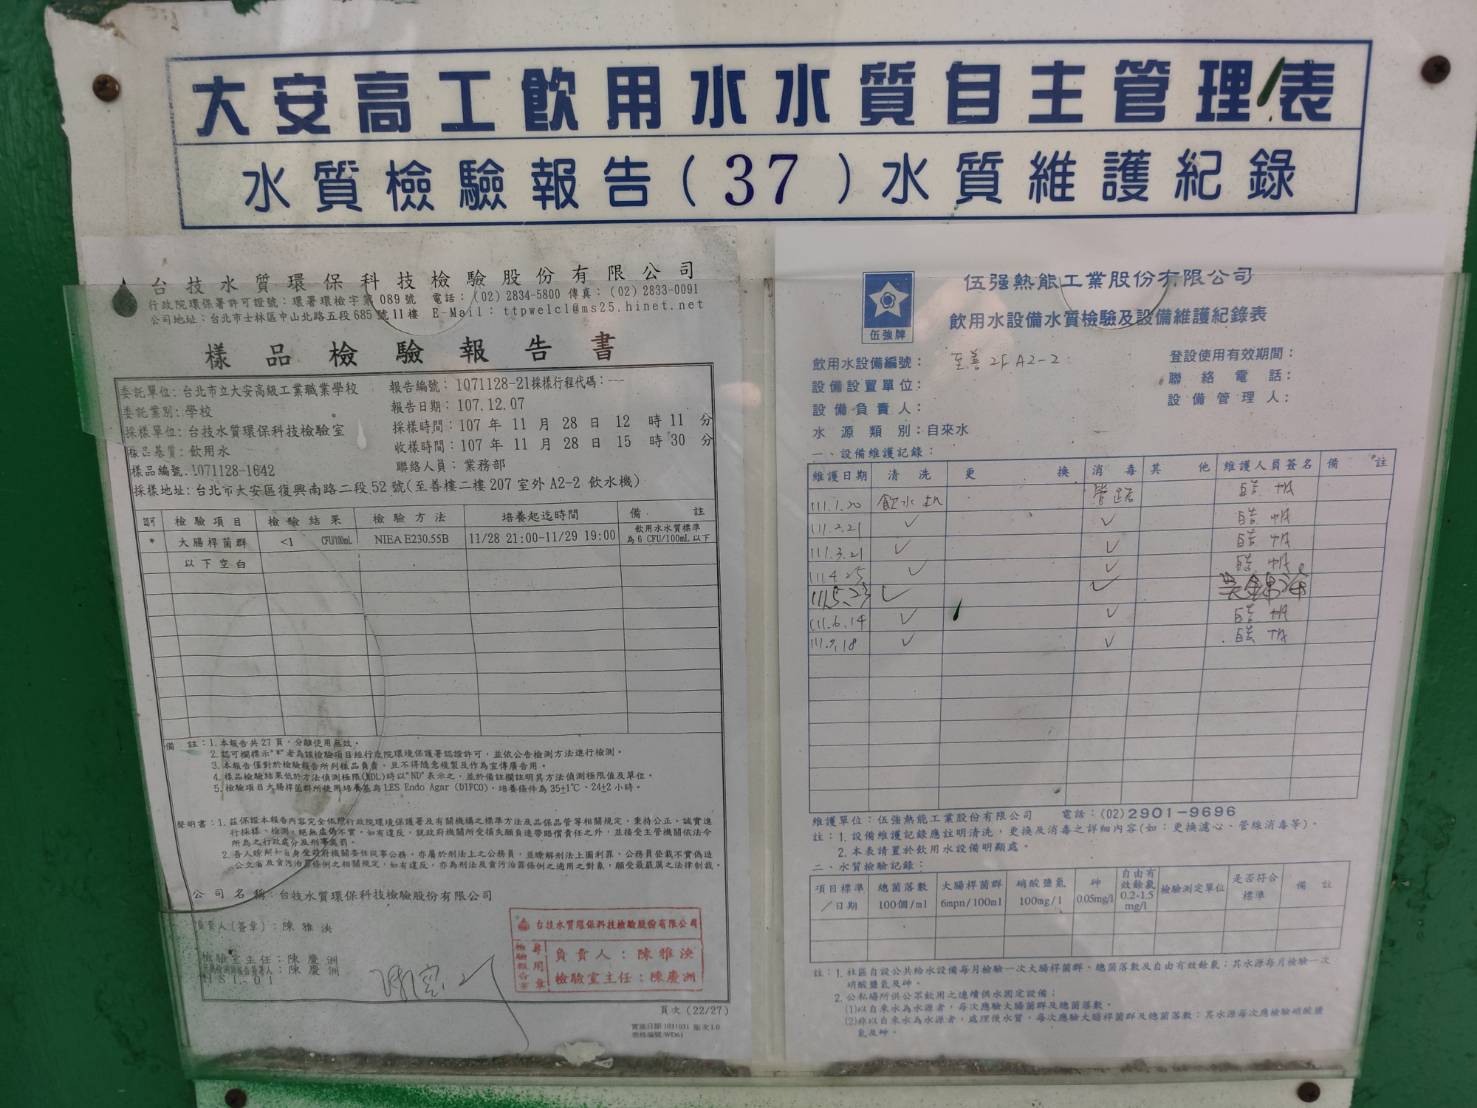 大安高工飲用水水質自主管理表
水質檢驗報告(37)水質維護紀錄
台技水質環保科技檢驗股份有限公司
行政院環保署許可證號：環署環檢字第089號 電話：(02) 2834-5800 傳真：(02) 2833-0091
公司地址：台北市士林區中山北路五段685號11樓 E-Mail：ttpwelcl@ms25.hinet.net
樣品檢驗報告書
委託單位：台北市立大安高級工業職業學校
委託業別：學校
採樣單位：台技水質環保科技檢驗室
樣品基質：飲用水
樣品編號：1071128-1642
報告編號：1071128-21採樣行程代碼：---
報告日期：107.12.07
採樣時間：107 年 11 月 28 日 12 時 11 分
收樣時間：107 年 11 月 28 日 15 時 30 分
聯絡人員：業務部
採樣地址：台北市大安區復興南路二段52號(至善樓二樓207室外A2-2 飲水機)
認可 檢驗項目 檢驗結果 檢驗方法 培養起迄時間 備註
* 大腸桿菌群 <1 CFU/100mL NIEA E230.55B 11/28 21:00-11/29 19:00 飲用水水質標準
為6 CFU/100mL以下
以下空白
備註：1.本報告共27頁，分離使用無效。
2.認可欄標示"*"者為該檢驗項目經行政院環境保護署認證許可，並依公告檢測方法進行檢測。
3.本報告僅對於檢驗報告所列樣品負責，且不得隨意複製及作為宣傳廣告用。
4.樣品檢驗結果低於方法偵測極限(MDL)時以"ND"表示之，並於備註欄註明其方法偵測極限值及單位。
5.檢驗項目大腸桿菌群所使用培養基為LES Endo Agar (DIFCO)，培養條件為35±1℃、24±2小時。
聲明書：1.茲保證本報告內容完全依照行政院環境保護署及有關機構之標準方法及品保品管等相關規定，秉持公正、誠實進
行採樣、檢測。絕無虛偽不實，如有違反，就政府機關所受損失願負連帶賠償責任之外，並接受主管機關依法令
所為之行政處分及刑事處罰。
2.吾人瞭解如自身受政府機關委任從事公務，亦屬於刑法上之公務員，並瞭解刑法上圖利罪、公務員登載不實偽造
公文書及貪污治罪條例之相關規定，如有違反，亦為刑法及貪污治罪條例之適用之對象，願受最嚴厲之法律制裁。
公司名稱：台技水質環保科技檢驗股份有限公司
負責人(簽章)：陳雅泱
檢驗室主任：陳慶洲
陳慶洲
台技水質環保科技檢驗股份有限公司
檢驗報告書專用章
負責人：陳雅泱
檢驗室主任：陳慶洲
頁次 (22/27)
伍強牌
伍强熱能工業股份有限公司
飲用水設備水質檢驗及設備維護紀錄表
飲用水設備編號：至善2F A2-2 登設使用有效期間：
設備設置單位： 聯絡電話：
設備負責人： 設備管理人：
水源類別：自來水
一、設備維護記錄：
維護日期 清洗 更換 消毒 其他 維護人員簽名 備註
111.1.20 飲水机 管路
111.2.21 ✓ ✓
111.3.21 ✓ ✓
111.4.25 ✓ ✓
111.5.23 ✓ ✓
111.6.14 ✓ ✓
111.9.18 ✓ ✓
維護單位：伍強熱能工業股份有限公司 電話：(02)2901-9696
註：1.設備維護記錄應註明清洗，更換及消毒之詳細內容(如：更換濾心、管線消毒等)。
2.本表請置於飲用水設備明顯處。
二、水質檢驗記錄：
項目標準／日期 總菌落數100個/ml 大腸桿菌群6mpn/100ml 硝酸鹽氮100mg/l 砷0.05mg/l 自由有效餘氯0.2-1.5mg/l 檢驗測定單位 是否符合標準 備註
註：1.社區自設公共給水設備每月檢驗一次大腸桿菌群、總菌落數及自由有效餘氯；其水源每月檢驗一次
硝酸鹽氮及砷。
2.公私場所供公眾飲用之連續供水固定設備：
(1)以自來水為水源者，每次應驗大腸桿菌群及總菌落數。
(2)非以自來水為水源者，處理後水質，每次應驗大腸桿菌群及總菌落數；其水源每次應檢驗硝酸鹽
氮及砷。